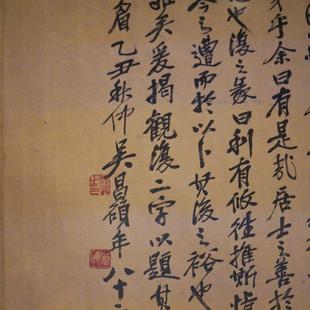 乎余曰有是哉居士之善於
也復之彖曰利有攸往推斯
今之遭而於以卜其後之裕也
矣爰揭觀復二字以題其
眉乙丑秋仲吳昌碩年八十